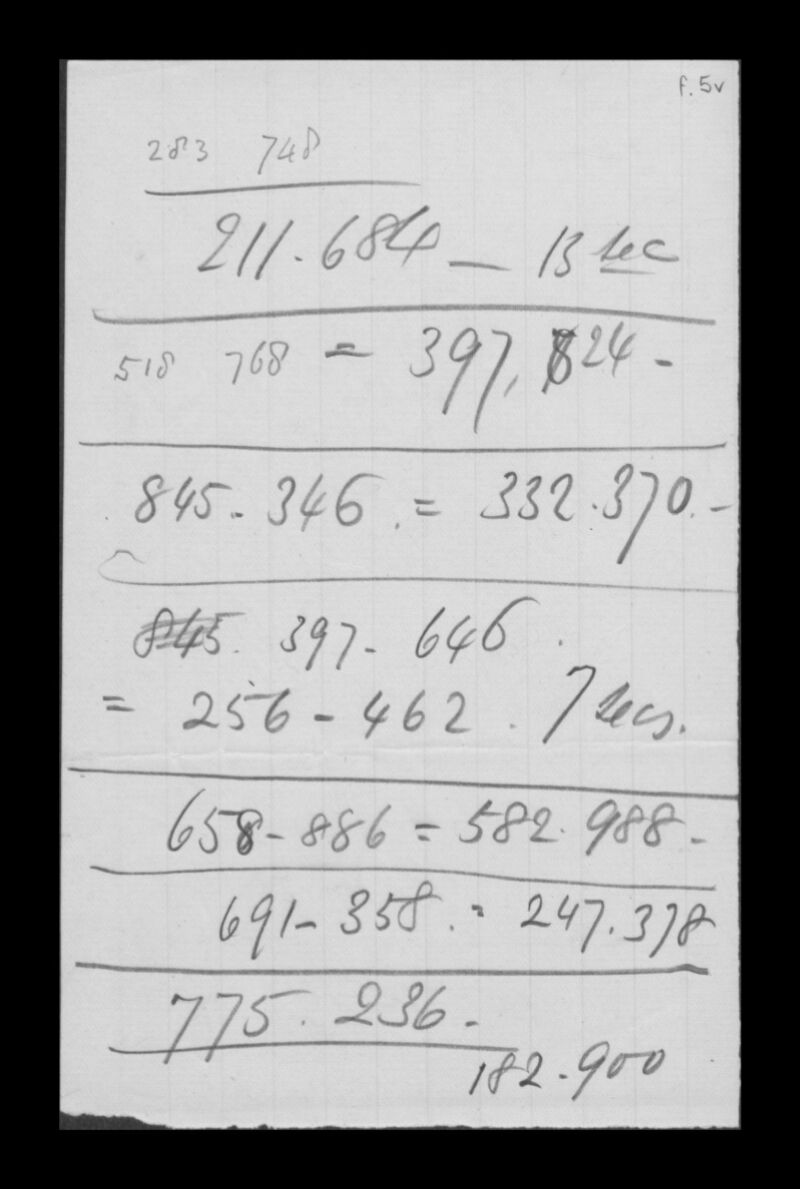 f. 5v
283 748
211.684 — 13 sec
518 768 = 397,824 -
845 - 346 . = 332.370. -
845. 397 - 646 .
= 256 - 462 . 7 secs.
658 - 886 = 582.988 -
691 - 358 . = 247.378
775 . 236 -
182 . 900